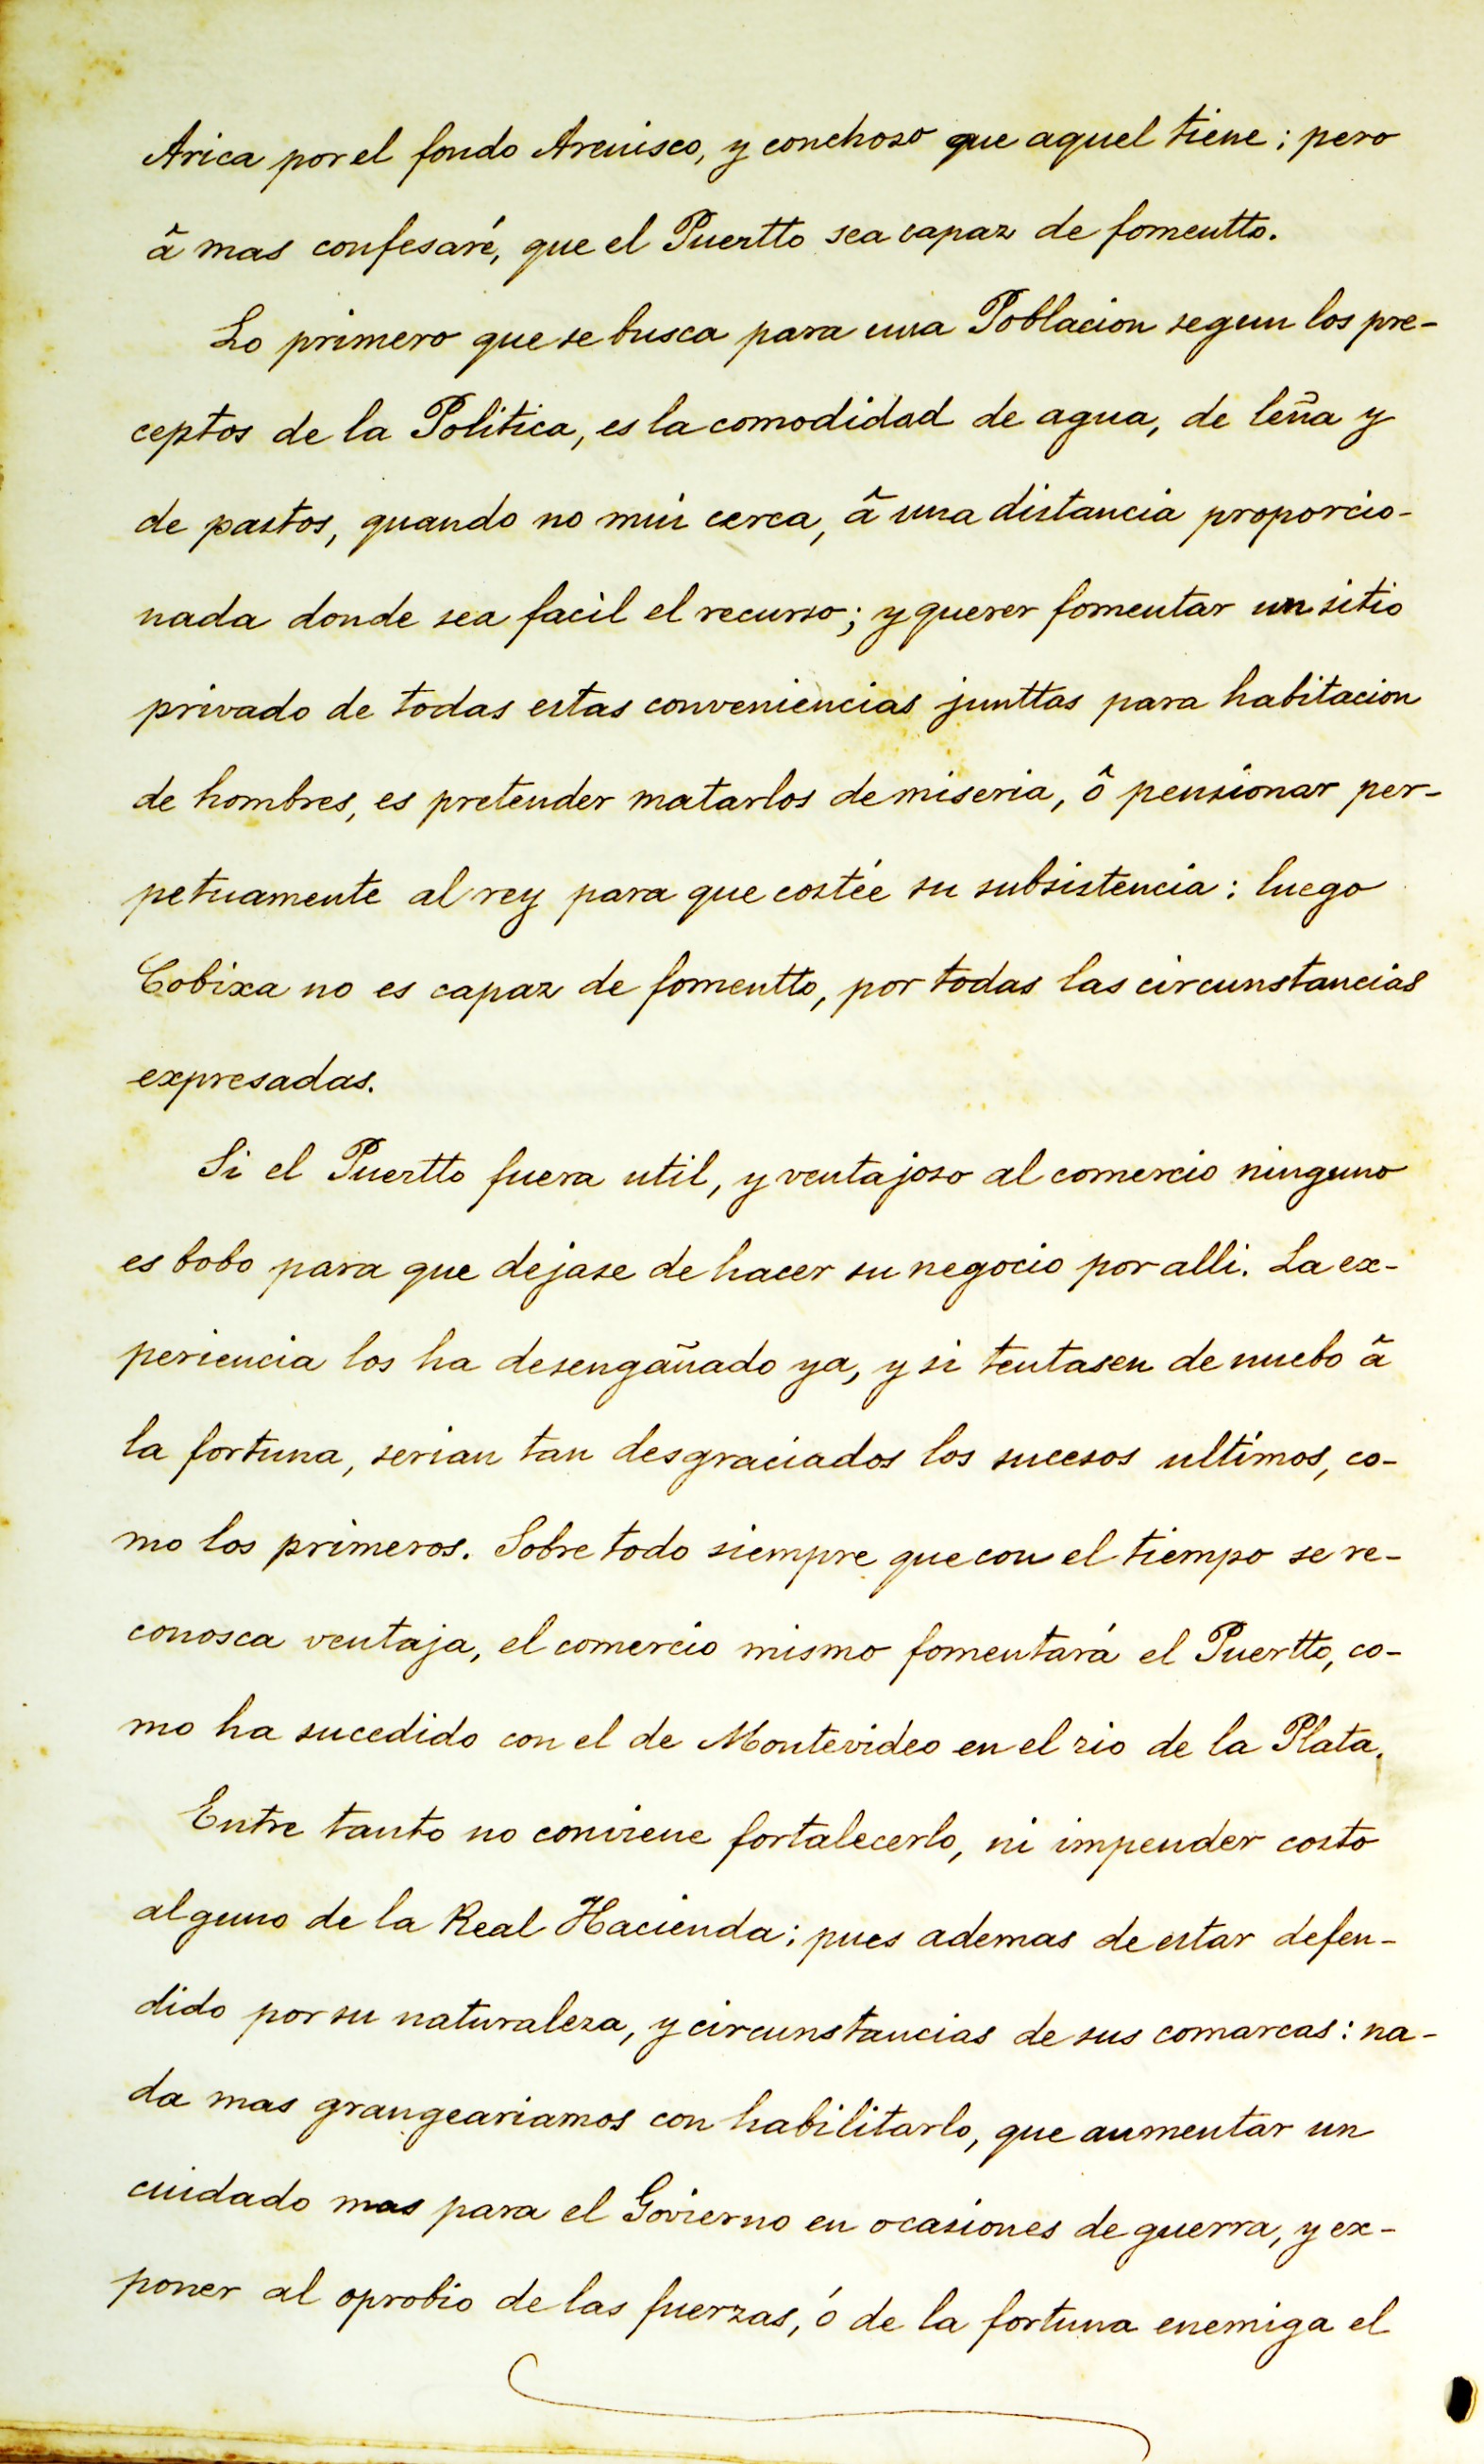 Arica por el fondo Arenisco, y conchoso que aquel tiene; pero
â mas confesaré, que el Puertto sea capaz de fomentto.
Lo primero que se busca para una Poblacion segun los pre-
ceptos de la Politica, es la comodidad de agua, de leña y
de pastos, quando no mui cerca, â una distancia proporcio-
nada donde sea facil el recurso; y querer fomentar un sitio
privado de todas estas conveniencias junttas para habitacion
de hombres, es pretender matarlos de miseria, ô pensionar per-
petuamente al rey para que costée su subsistencia: luego
Cobixa no es capaz de fomentto, por todas las circunstancias
expresadas.
Si el Puertto fuera util, y ventajoso al comercio ninguno
es bobo para que dejase de hacer su negocio por alli. La ex-
periencia los ha desengañado ya, y si tentasen de nuebo â
la fortuna, serian tan desgraciados los sucesos ultimos, co-
mo los primeros. Sobre todo siempre que con el tiempo se re-
conosca ventaja, el comercio mismo fomentará el Puertto, co-
mo ha sucedido con el de Montevideo en el rio de la Plata.
Entre tanto no conviene fortalecerlo, ni impender costo
alguno de la Real Hacienda; pues ademas de estar defen-
dido por su naturaleza, y circunstancias de sus comarcas: na-
da mas grangeariamos con habilitarlo, que aumentar un
cuidado mas para el Govierno en ocasiones de guerra, y ex-
poner al oprobio de las fuerzas, ó de la fortuna enemiga el